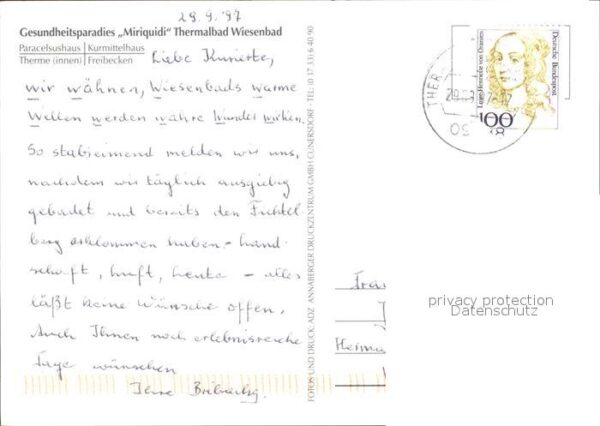 29.9.'97
Gesundheitsparadies „Miriquidi” Thermalbad Wiesenbad
Paracelsushaus | Kurmittelhaus
Therme (innen) | Freibecken
Liebe
wir wähnen, Wiesenbads warme
Wellen werden wahre Wunder wirken.
So stabreimend melden wir uns,
nachdem wir täglich ausgiebig
gebadet und bereits den Fichtel
berg erklommen haben. -
schaft, Luft, heute - alles
läßt keine Wünsche offen.
Auch Ihnen noch erlebnisreiche
Tage wünschen
Ihre
FOTOS UND DRUCK: ADZ ANNABERGER DRUCKZENTRUM GMBH CUNERSDORF · TEL: (0 37 33) 6 40 90
Deutsche Bundespost
Luise Henriette von Oranien
100
THER
Frau
Herma
privacy protection
Datenschutz